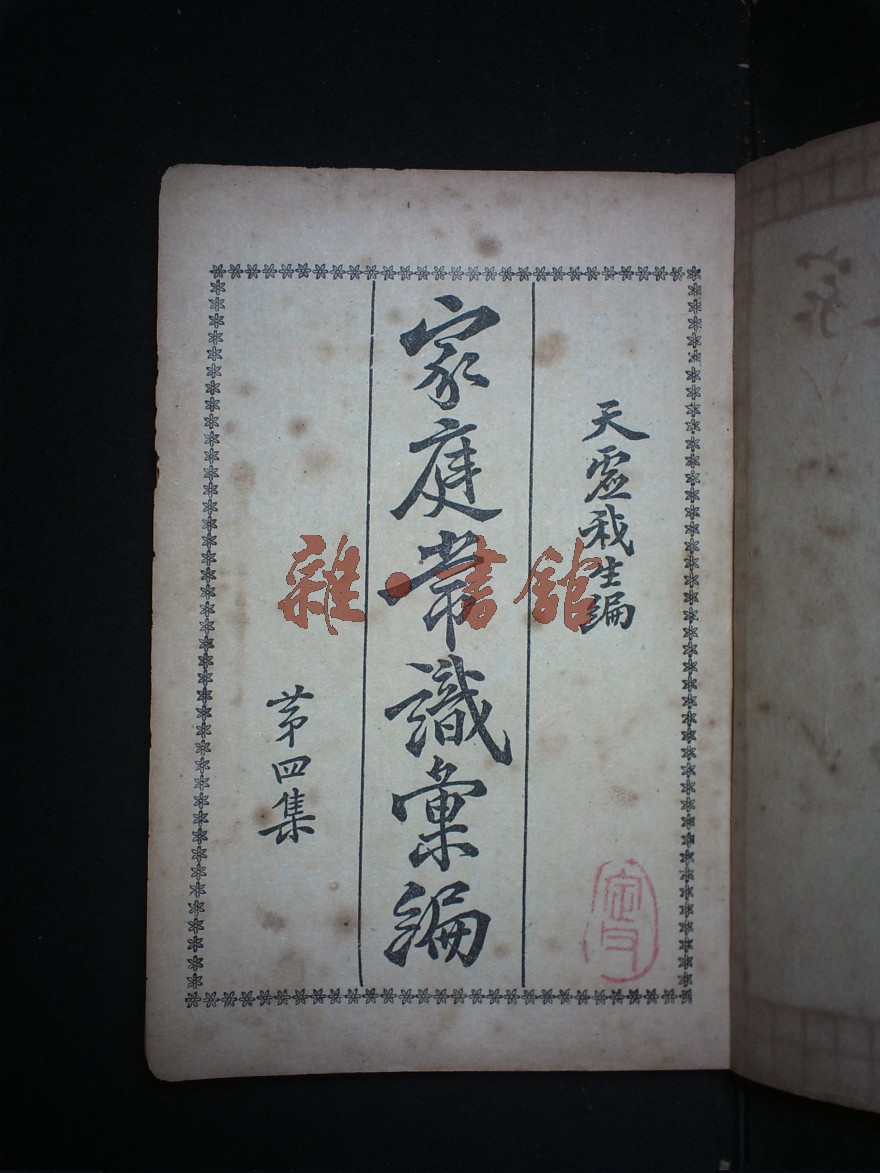 天虛我生編
家庭常識彙編
第四集
雜·書館
家